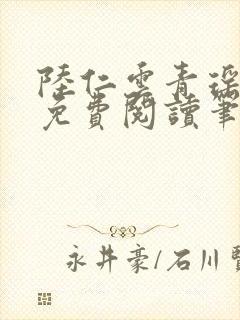 陸仁雲青瑶
免費閱讀筆
永井豪/石川賢